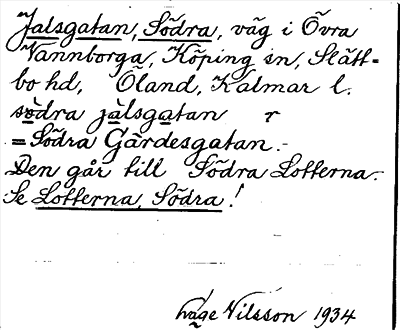 Jalsgatan, Södra, väg i Övra
Vannborga, Köping sn, Slätt-
bo hd, Öland, Kalmar l.
södra jàlsgatan r
= Södra Gärdesgatan.-
Den går till Södra Lotterna.-
Se Lotterna, Södra!
Åge Nilsson 1934